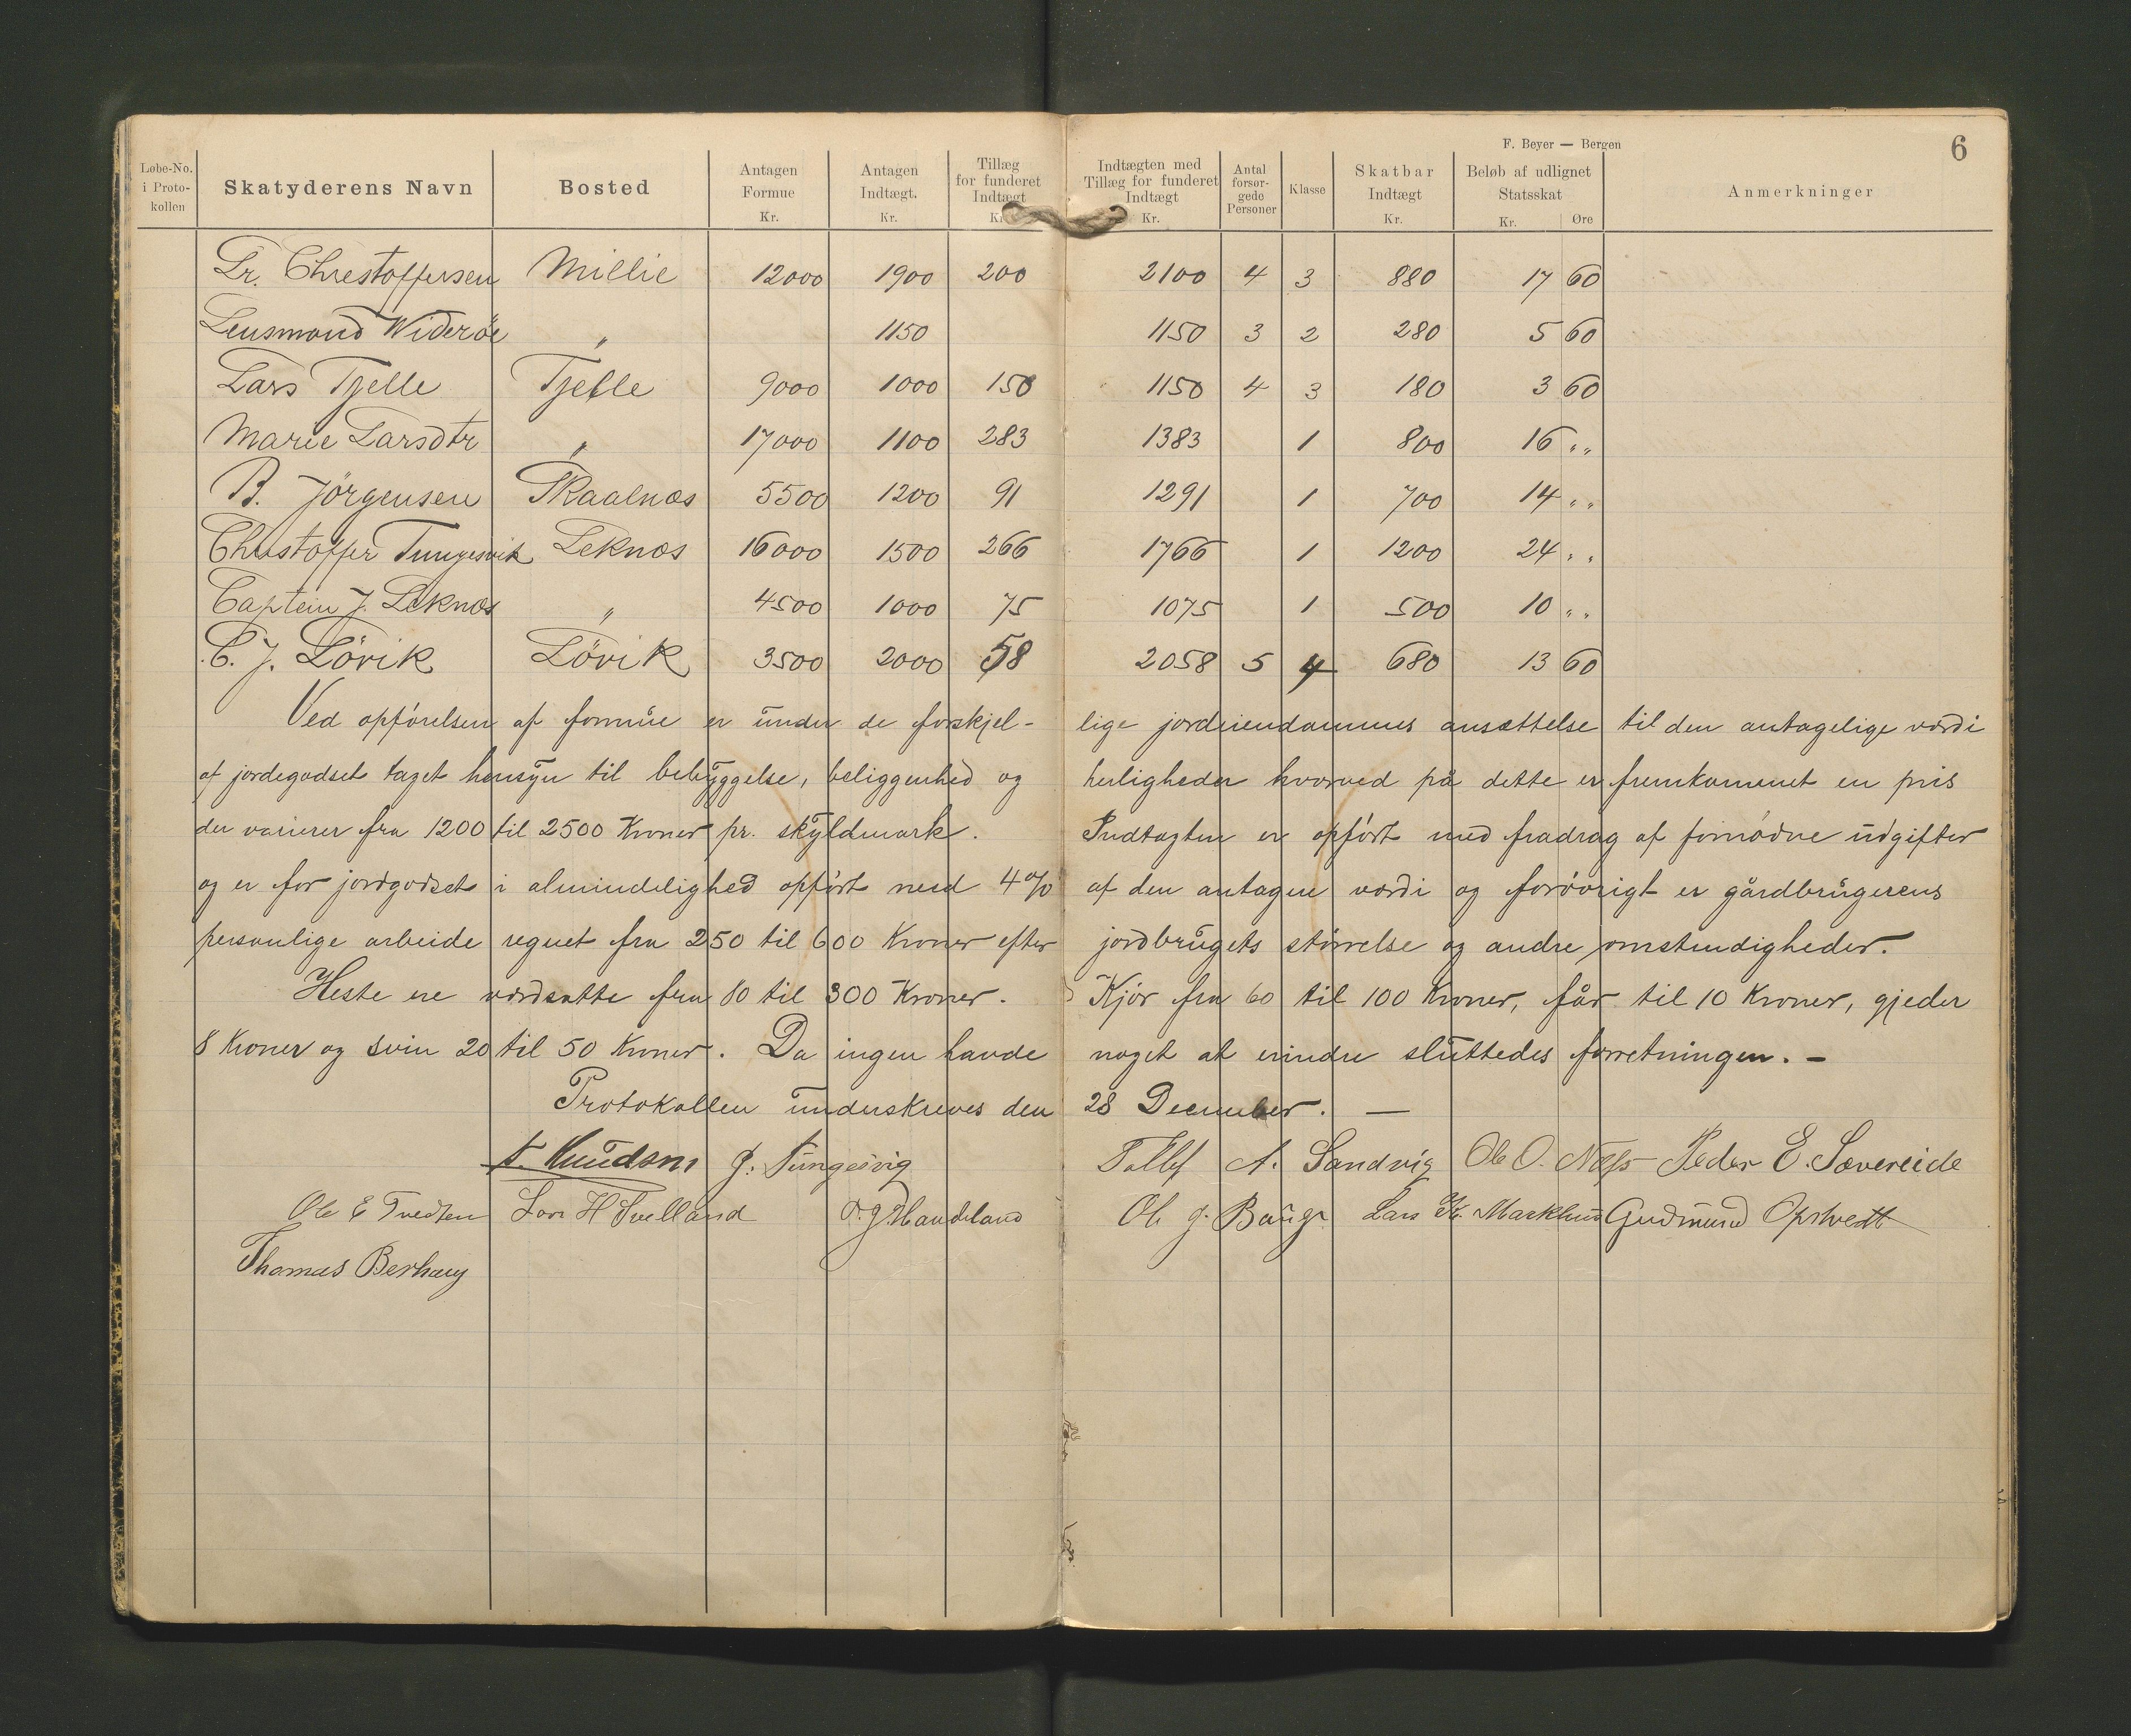 F. Beyer — Bergen
6
Løbe-No. i Proto-kollen | Skatyderens Navn | Bosted | Antagen Formue Kr. | Antagen Indtægt. Kr. | Tillæg for funderet Indtægt Kr. | Indtægten med Tillæg for funderet Indtægt Kr. | Antal forsør-gede Personer | Klasse | Skatbar Indtægt Kr. | Beløb af udlignet Statsskat Kr. Øre | Anmerkninger
Dr. Christoffersen Millie 12000 1900 200 2100 4 3 880 17 60
Lensmand Widerøe " 1150 1150 3 2 280 5 60
Lars Tjelle Tjelle 9000 1000 150 1150 4 3 180 3 60
Marie Larsdtr " 17000 1100 283 1383 1 800 16 "
B. Jörgensen Skaalnæs 5500 1200 91 1291 1 700 14 "
Christoffer Tungesvik Leknæs 16000 1500 266 1766 1 1200 24 "
Captein J. Leknæs " 4500 1000 75 1075 1 500 10 "
C. J. Lövik Lövik 3500 2000 58 2058 5 4 680 13 60
Ved opförelsen af formue er under de forskjel- lige jordeiendommes ansættelse til den antagelige værdi
af jordegodset taget hensyn til bebyggelse, beliggenhed og herligheder hvorved på dette er fremkommet en pris
der varierer fra 1200 til 2500 Kroner pr. skyldmark. Indtægten er opfört med fradrag af fornödne udgifter
og er for jordgodset i almindelighed opfört med 4% af den antagne værdi og forövrigt er gårdbrugerens
personlige arbeide regnet fra 250 til 600 Kroner efter jordbrugets störrelse og andre omstendigheder.
Heste ere værdsatte fra 80 til 300 Kroner. Kjör fra 60 til 100 Kroner, får til 10 Kroner, gjeder
8 Kroner og svin 20 til 50 Kroner. Da ingen havde noget at erindre sluttedes forretningen. —
Protokollen underskreves den 28 December. —
Knudsen J. Tungesvig Tollef A. Sandvig Ole O. Næss Peder E. Sævereide
Ole E Tvedten Lars H Svelland Handeland Ole J. Bauge Lars K. Markhus Gudmund Opstvedt
Thomas Berhaug